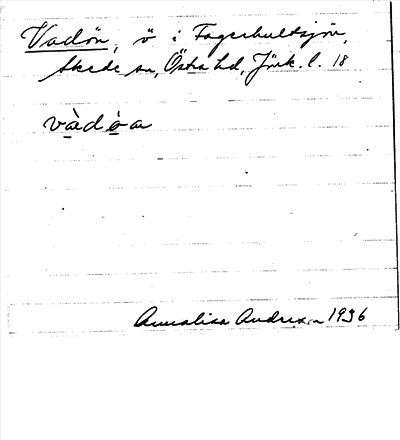 Vadön, ö i Fagerhultsjön,
Skede sn, Östra hd, Jönk. l. 18
vàdöa
Annalisa 1936